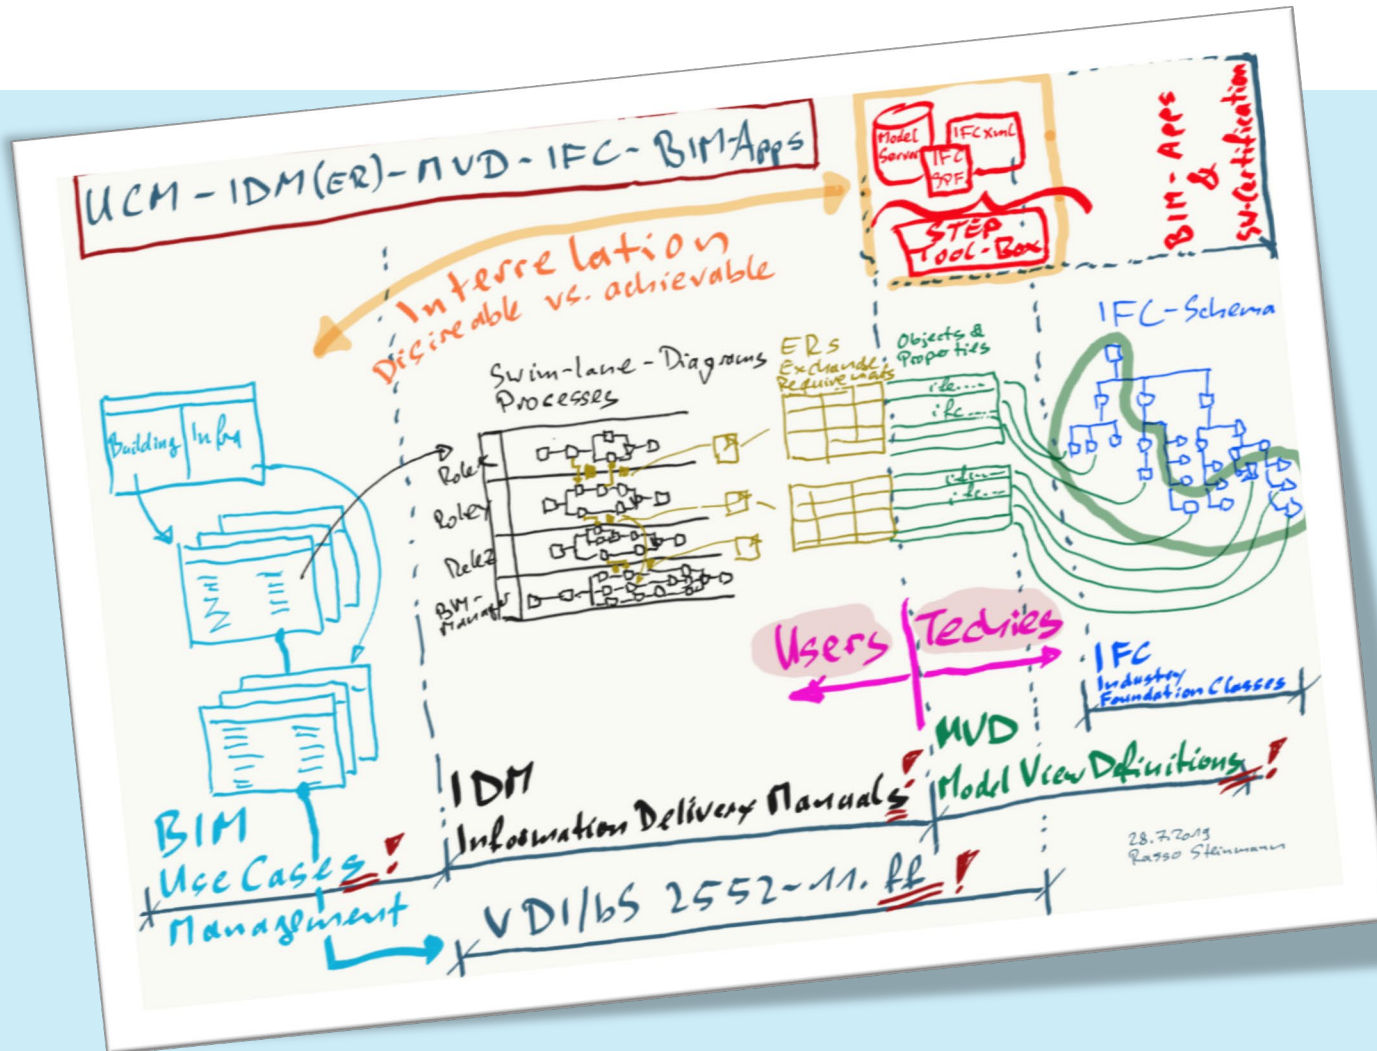 UCM-IDM(ER)-MVD-IFC-BIM-Apps
Interrelation
Disireable vs. achievable
Model
Server
IFCxml
IFC
SPF
STEP
Tool-Box
BIM-Apps
&
SW-Certification
Building
Infra
Swim-lane-Diagrams
Processes
RoleX
RoleY
RoleZ
BIM-
Manager
ERs
Exchange
Requirements
Objects &
Properties
ifc....
ifc....
ifc....
ifc...
IFC-Schema
Users
Techies
IFC
Industry
Foundation Classes
MVD
Model View Definitions!
IDM
Information Delivery Manuals!
BIM
Use Cases!
Management
VDI/bS 2552-11.ff!
28.7.2019
Rasso Steinmann